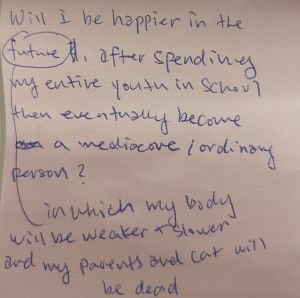 Will I be happier in the
future, after spending
my entire youth in School
then eventually become
a mediocore / ordinary
person?
in which my body
will be weaker + slower
and my parents and cat will
be dead